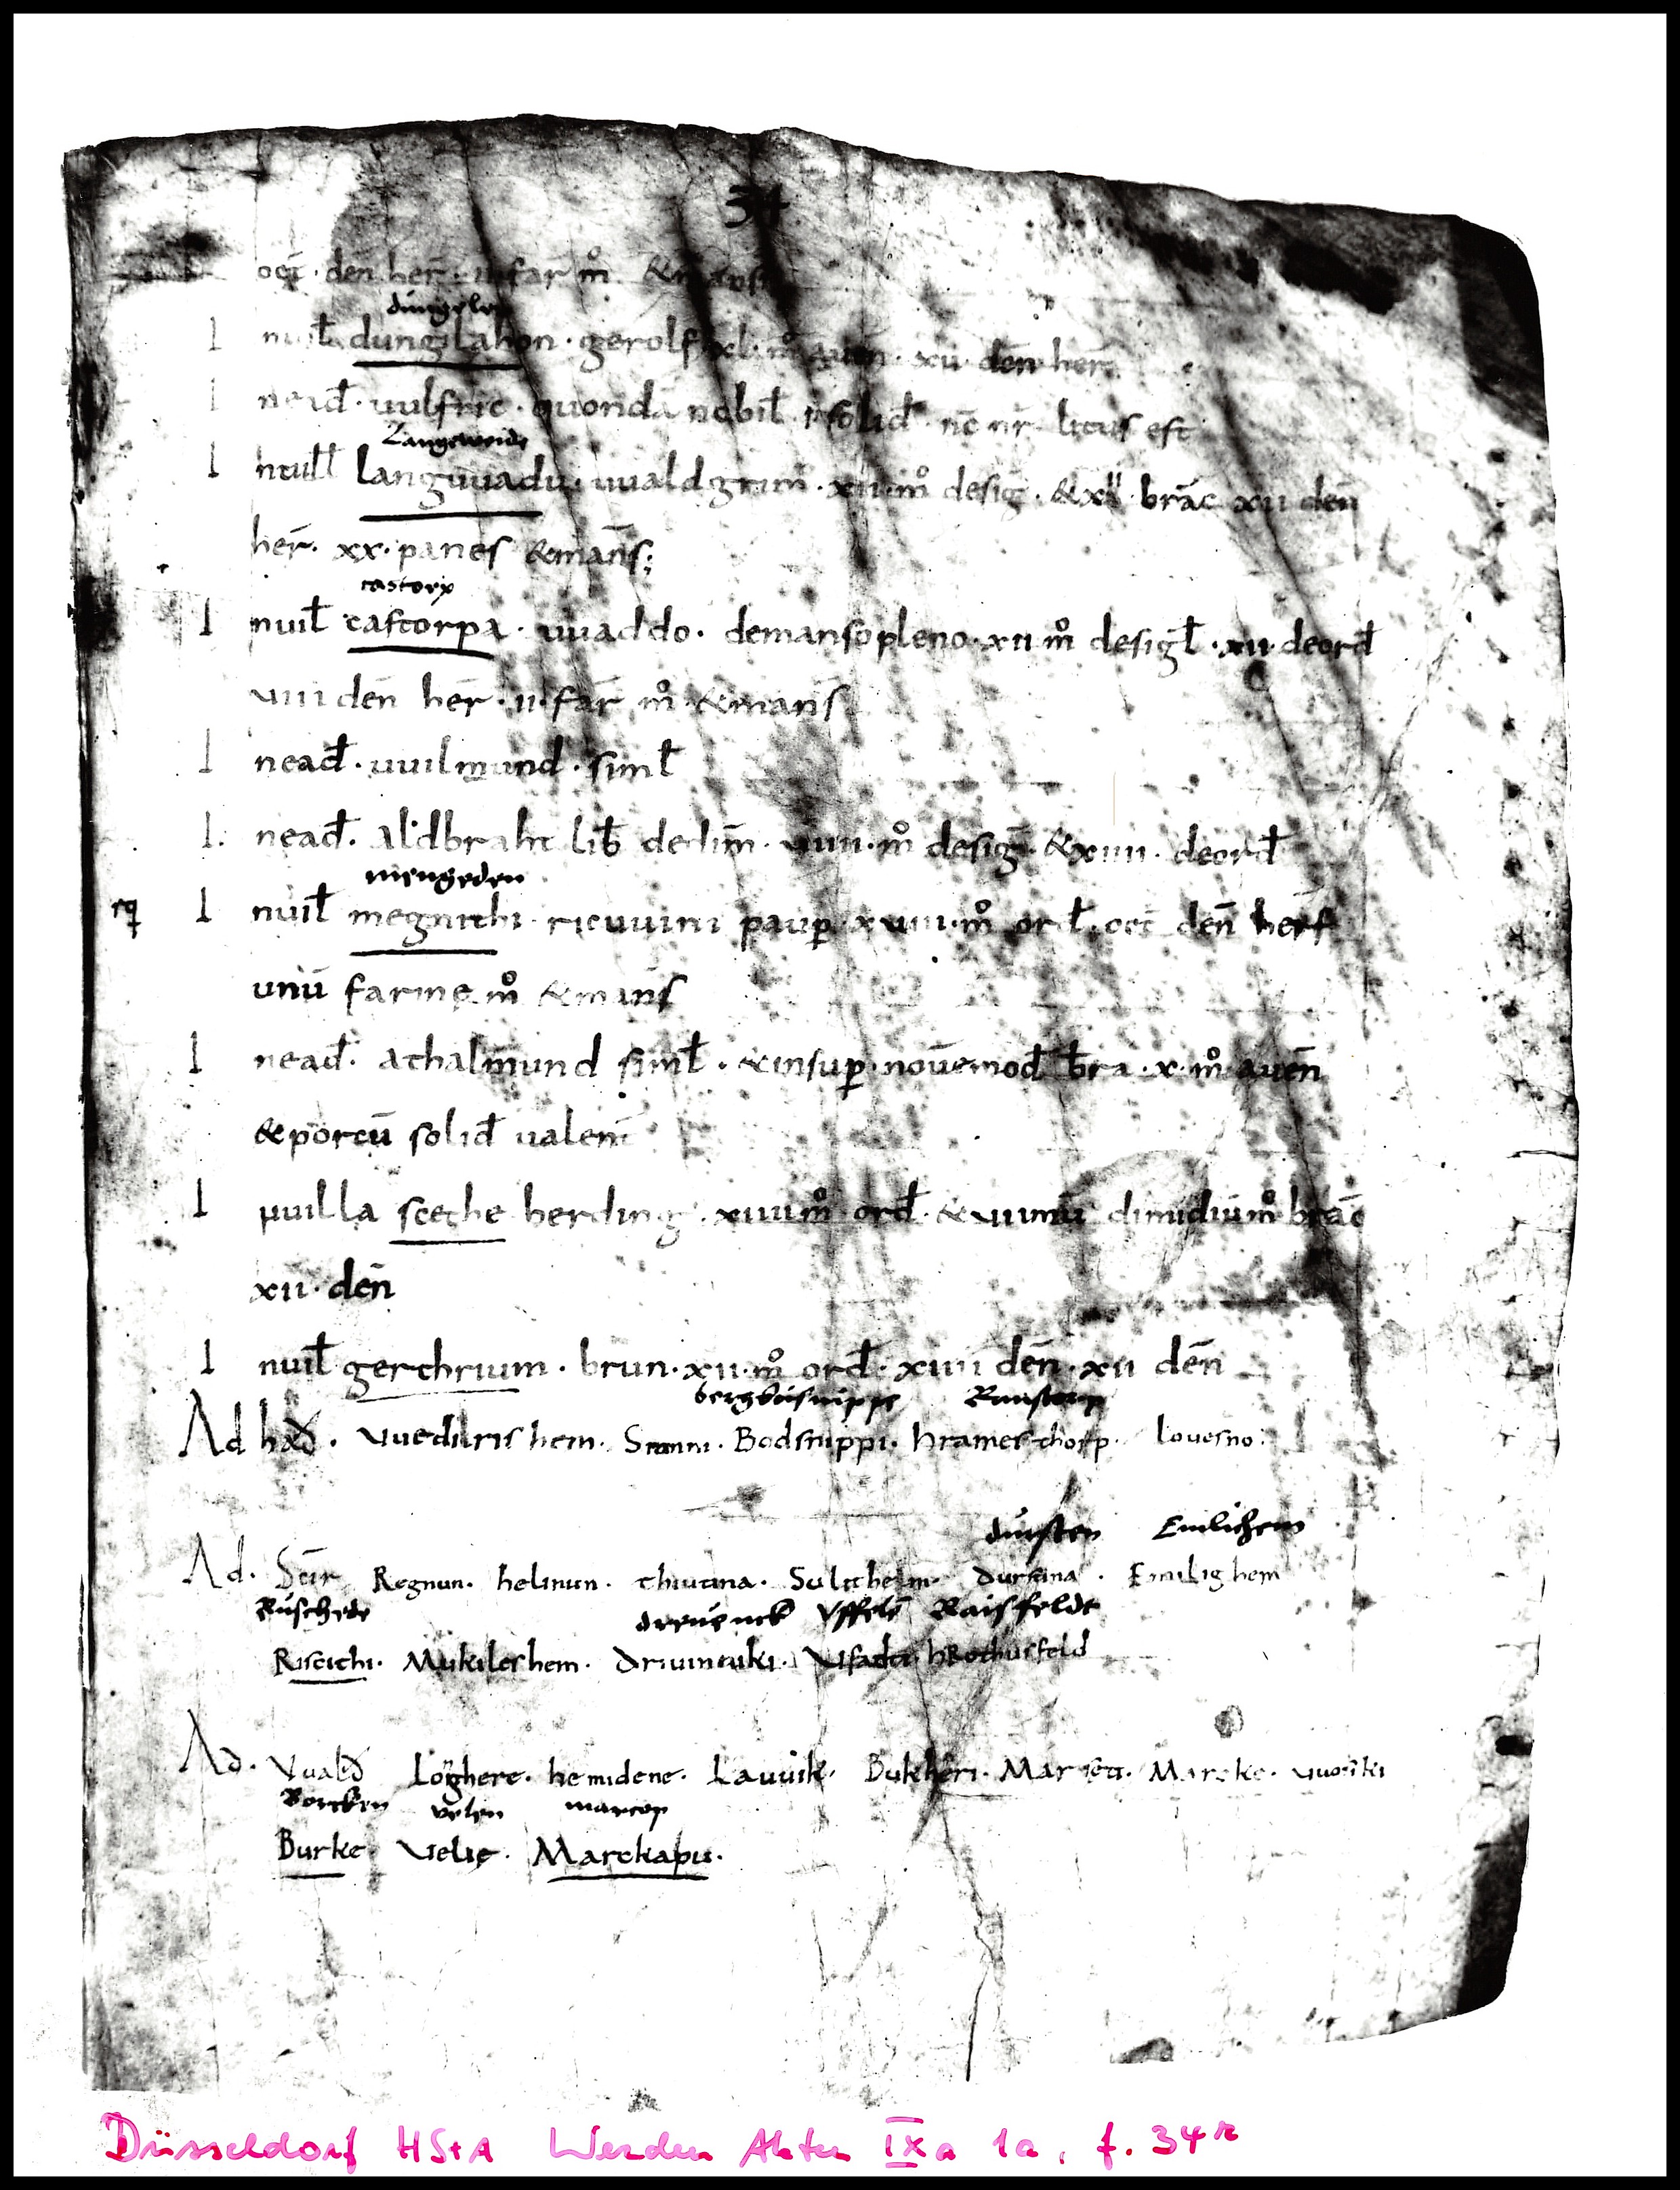 34
oct̄ · den̄ her̄ · ii · far̄ m̊ & mans
dungelen
I in uil̄ dunglahon · gerolf · xl · m̊ auen̄ · xii · den her̄
I in ead̄ · uulfric · quondā nobil̄ solid̄ · nō nr̄ litus est
Langeweide
I In uill̄ Languuadu · uualdgrim · xii · m̊ desiḡ · & xii · brac̄ xii den̄
her̄ · xx · panes & mans̄;
castorp
I in uil̄ castorpa · uuaddo · de manso pleno · xii m̊ desigl̄ · xii · de ord̄
uiii den̄ her̄ · ii · far̄ m̊ & mans̄
I in ead̄ · uuilmund · simil̄
I in ead̄ · Aldbraht lib̄ dedim̄ · uiiii · m̊ desiḡ · & xiiii · de ord̄
mengeden
rq I in uil̄ megnithi · ricuuini paup̲ · xuiii · m̊ ord̄ · oct̄ den̄ her̄
unū farine m̊ & mans̄
I in ead̄ · athalmund simil̄ · & insup̲ · nouē mod̄ bra · x · m̊ auen̄
& porcū solid̄ ualent̄
I In uilla scethe herding · xiiii m̊ ord̄ · & uiimū dimidiū m̊ brac̄
xii · den̄
I in uil̄ gerthrium · brun · xii · m̊ ord̄ · xiiii den̄ · xii den̄
berghusnippe Ramstorp
Ad hađ · Vuedilrishem · Stanni · Bodsnippi · hramesthorp · Louesno ·
dúrsten Emlichem
Ad · Stir Regnun · helinun · thiutina · Sulitheim · Durstina · Emilighem
Rúschede dreúenck Vffelē Raisfeldt
Riscithi · Mukileshem · Driuiniki · Vifadti hRothusfeld
Ad · Vualđ Loghere · hemidene · Lauuik · Bukheri · Markeu · Mareke · uuosiki
Borcken velen marcop
Burke Velie · Marckapu ·
Düsseldorf HStA Werden Akten IXa 1a, f. 34r